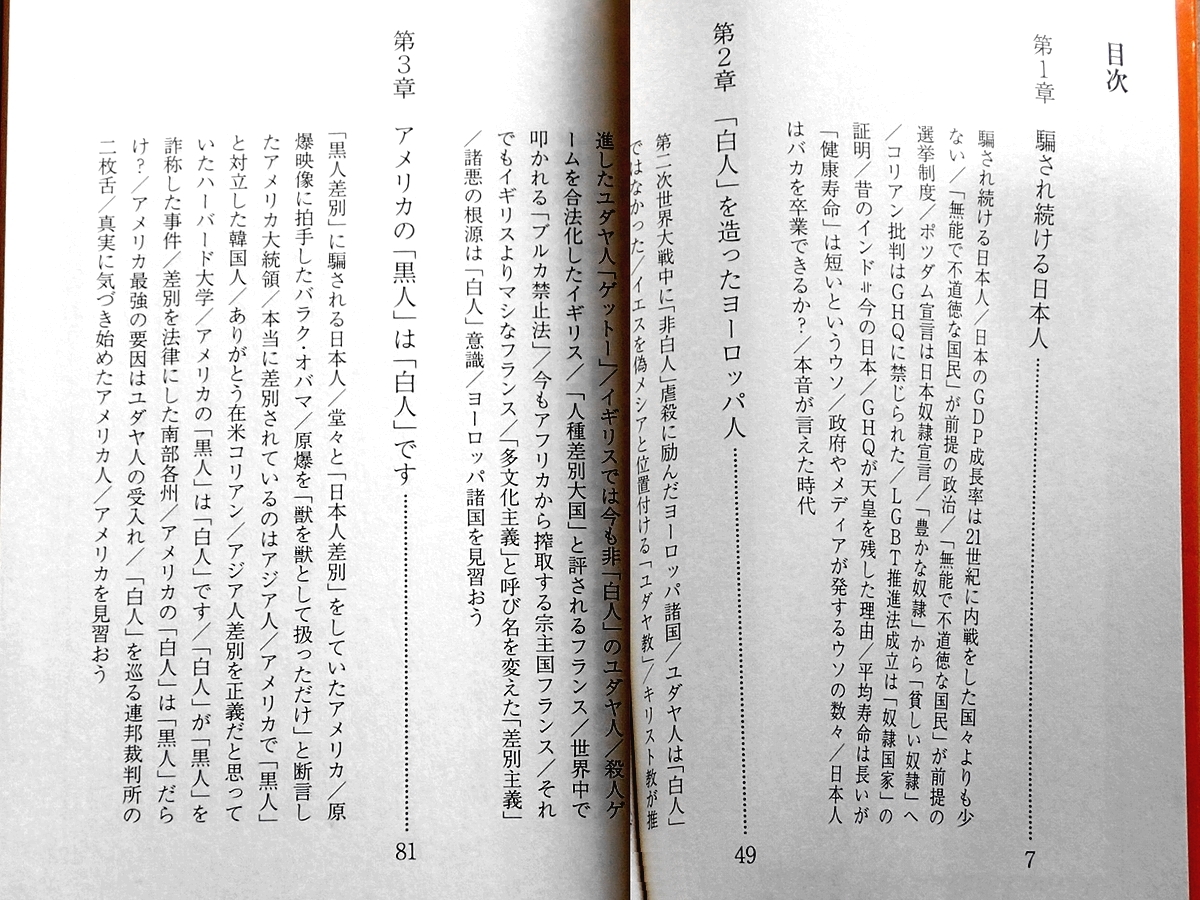 目次
第1章　騙され続ける日本人 7
騙され続ける日本人／日本のGDP成長率は21世紀に内戦をした国々よりも少
ない／「無能で不道徳な国民」が前提の政治／「無能で不道徳な国民」が前提の
選挙制度／ポツダム宣言は日本奴隷宣言／「豊かな奴隷」から「貧しい奴隷」へ
／コリアン批判はGHQに禁じられた／LGBT推進法成立は「奴隷国家」の
証明／昔のインド≒今の日本／GHQが天皇を残した理由／平均寿命は長いが
「健康寿命」は短いというウソ／政府やメディアが発するウソの数々／日本人
はバカを卒業できるか？／本音が言えた時代
第2章　「白人」を造ったヨーロッパ人 49
第二次世界大戦中に「非白人」虐殺に励んだヨーロッパ諸国／ユダヤ人は「白人」
ではなかった／イエスを偽メシアと位置付ける「ユダヤ教」／キリスト教が推
進したユダヤ人「ゲットー」／イギリスでは今も非「白人」のユダヤ人／殺人ゲ
ームを合法化したイギリス／「人種差別大国」と評されるフランス／世界中で
叩かれる「ブルカ禁止法」／今もアフリカから搾取する宗主国フランス／それ
でもイギリスよりマシなフランス／「多文化主義」と呼び名を変えた「差別主義」
／諸悪の根源は「白人」意識／ヨーロッパ諸国を見習おう
第3章　アメリカの「黒人」は「白人」です 81
「黒人差別」に騙される日本人／堂々と「日本人差別」をしていたアメリカ／原
爆映像に拍手したバラク・オバマ／原爆を「獣を獣として扱っただけ」と断言し
たアメリカ大統領／本当に差別されているのはアジア人／アメリカで「黒人」
と対立した韓国人／ありがとう在米コリアン／アジア人差別を正義だと思って
いたハーバード大学／アメリカの「黒人」は「白人」です／「白人」が「黒人」を
詐称した事件／差別を法律にした南部各州／アメリカの「白人」は「黒人」だら
け？／アメリカ最強の要因はユダヤ人の受入れ／「白人」を巡る連邦裁判所の
二枚舌／真実に気づき始めたアメリカ人／アメリカを見習おう